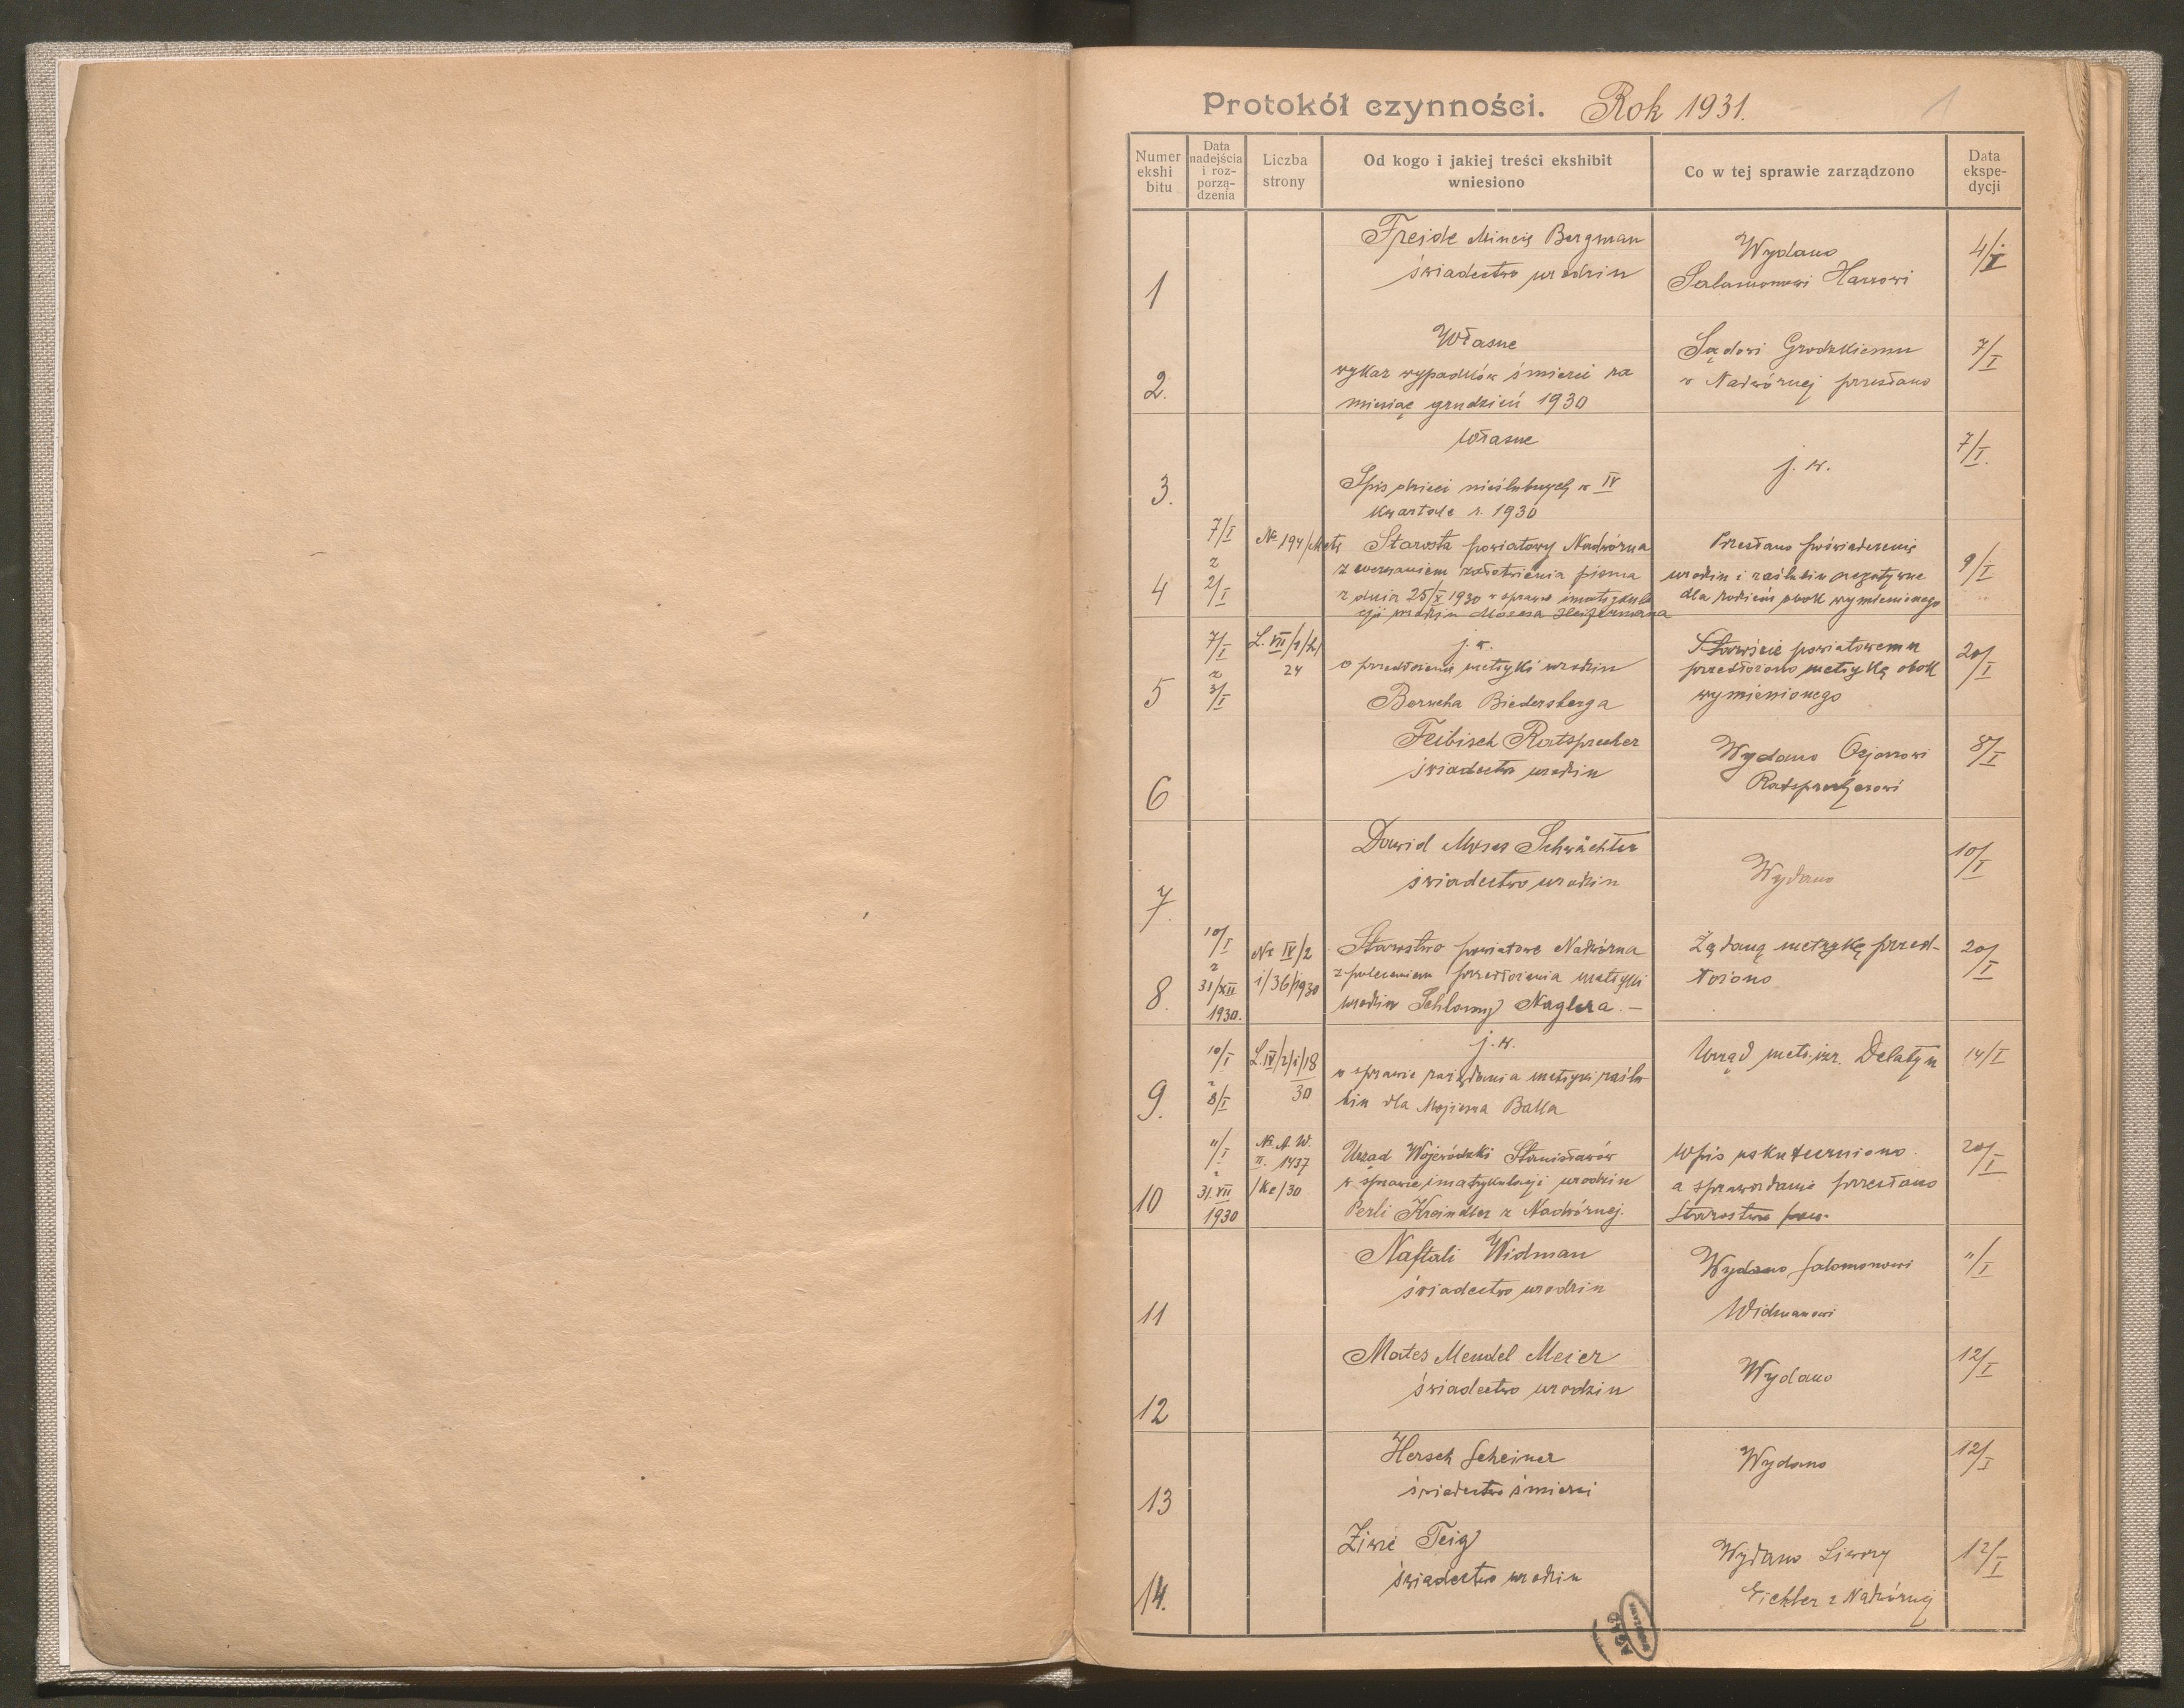 Protokół czynności. Rok 1931. 1
Numer ekshibitu
Data nadejścia i rozporządzenia
Liczba strony
Od kogo i jakiej treści ekshibit wniesiono
Co w tej sprawie zarządzono
Data ekspedycji
1 Freide Mincie Bergman Wydano 4/I
świadectwo urodzin Salamonowi Harrowi
2. Własne Sądowi Grodzkiemu 7/I
wykaz wypadków śmierci za w Nadwórnej przesłano
miesiąc grudzień 1930
3. Własne j. w. 7/I.
Spis dzieci nieślubnych w IV
kwartale r. 1930
4 7/I z 2/I No 194/Metr Starosta powiatowy Nadwórna Przesłano poświadczenie 9/I
z wezwaniem załatwienia pisma urodzin i zaślubin negatywne
z dnia 25/X 1930 w sprawie imatrykula dla rodziców obok wymienionego
cji urodzin Mozesa Heizermana
5 7/I z 3/I L. VII/1/2/24 j. w. Staroście powiatowemu 20/I
o przedłożenie metryki urodzin przedłożono metrykę obok
Berucha Biedersberga wymienionego
6 Feibisch Ratsprecher Wydano Ozjaszowi 8/I
świadectwo urodzin Ratsprecherowi
7. Dawid Moses Schwächter Wydano 10/I
świadectwo urodzin
8. 10/I z 31/XII 1930. Nr IV/2 i/36/1930 Starostwo powiatowe Nadwórna Żądaną metrykę przed- 20/I
z poleceniem przedłożenia metryki łożono
urodzin Schlomy Naglera. —
9. 10/I z 8/I L. IV/2/i/18 30 j. w. Urząd metr. izr. Delatyn 14/I
w sprawie zażądania metryki zaślu-
bin dla Mojżesza Balla
10 11/I z 31.VII 1930 No. A. W. II. 1437 /Ke/30 Urząd Wojewódzki Stanisławów Wpis uskuteczniono 20/I
w sprawie imatrykulacji urodzin a sprawozdanie przesłano
Perli Kreindler z Nadwórnej. Starostwu pow.
11 Naftali Widman Wydano Salomonowi 11/I
świadectwo urodzin Widmanowi
12 Mates Mendel Meier Wydano 12/I
świadectwo urodzin
13 Hersch Scheiner Wydano 12/I
świadectwo śmierci
14. Ziwie Teig Wydano Siwory 12/I
świadectwo urodzin Eichler z Nadwórnej
AGAD
WARSZAWA